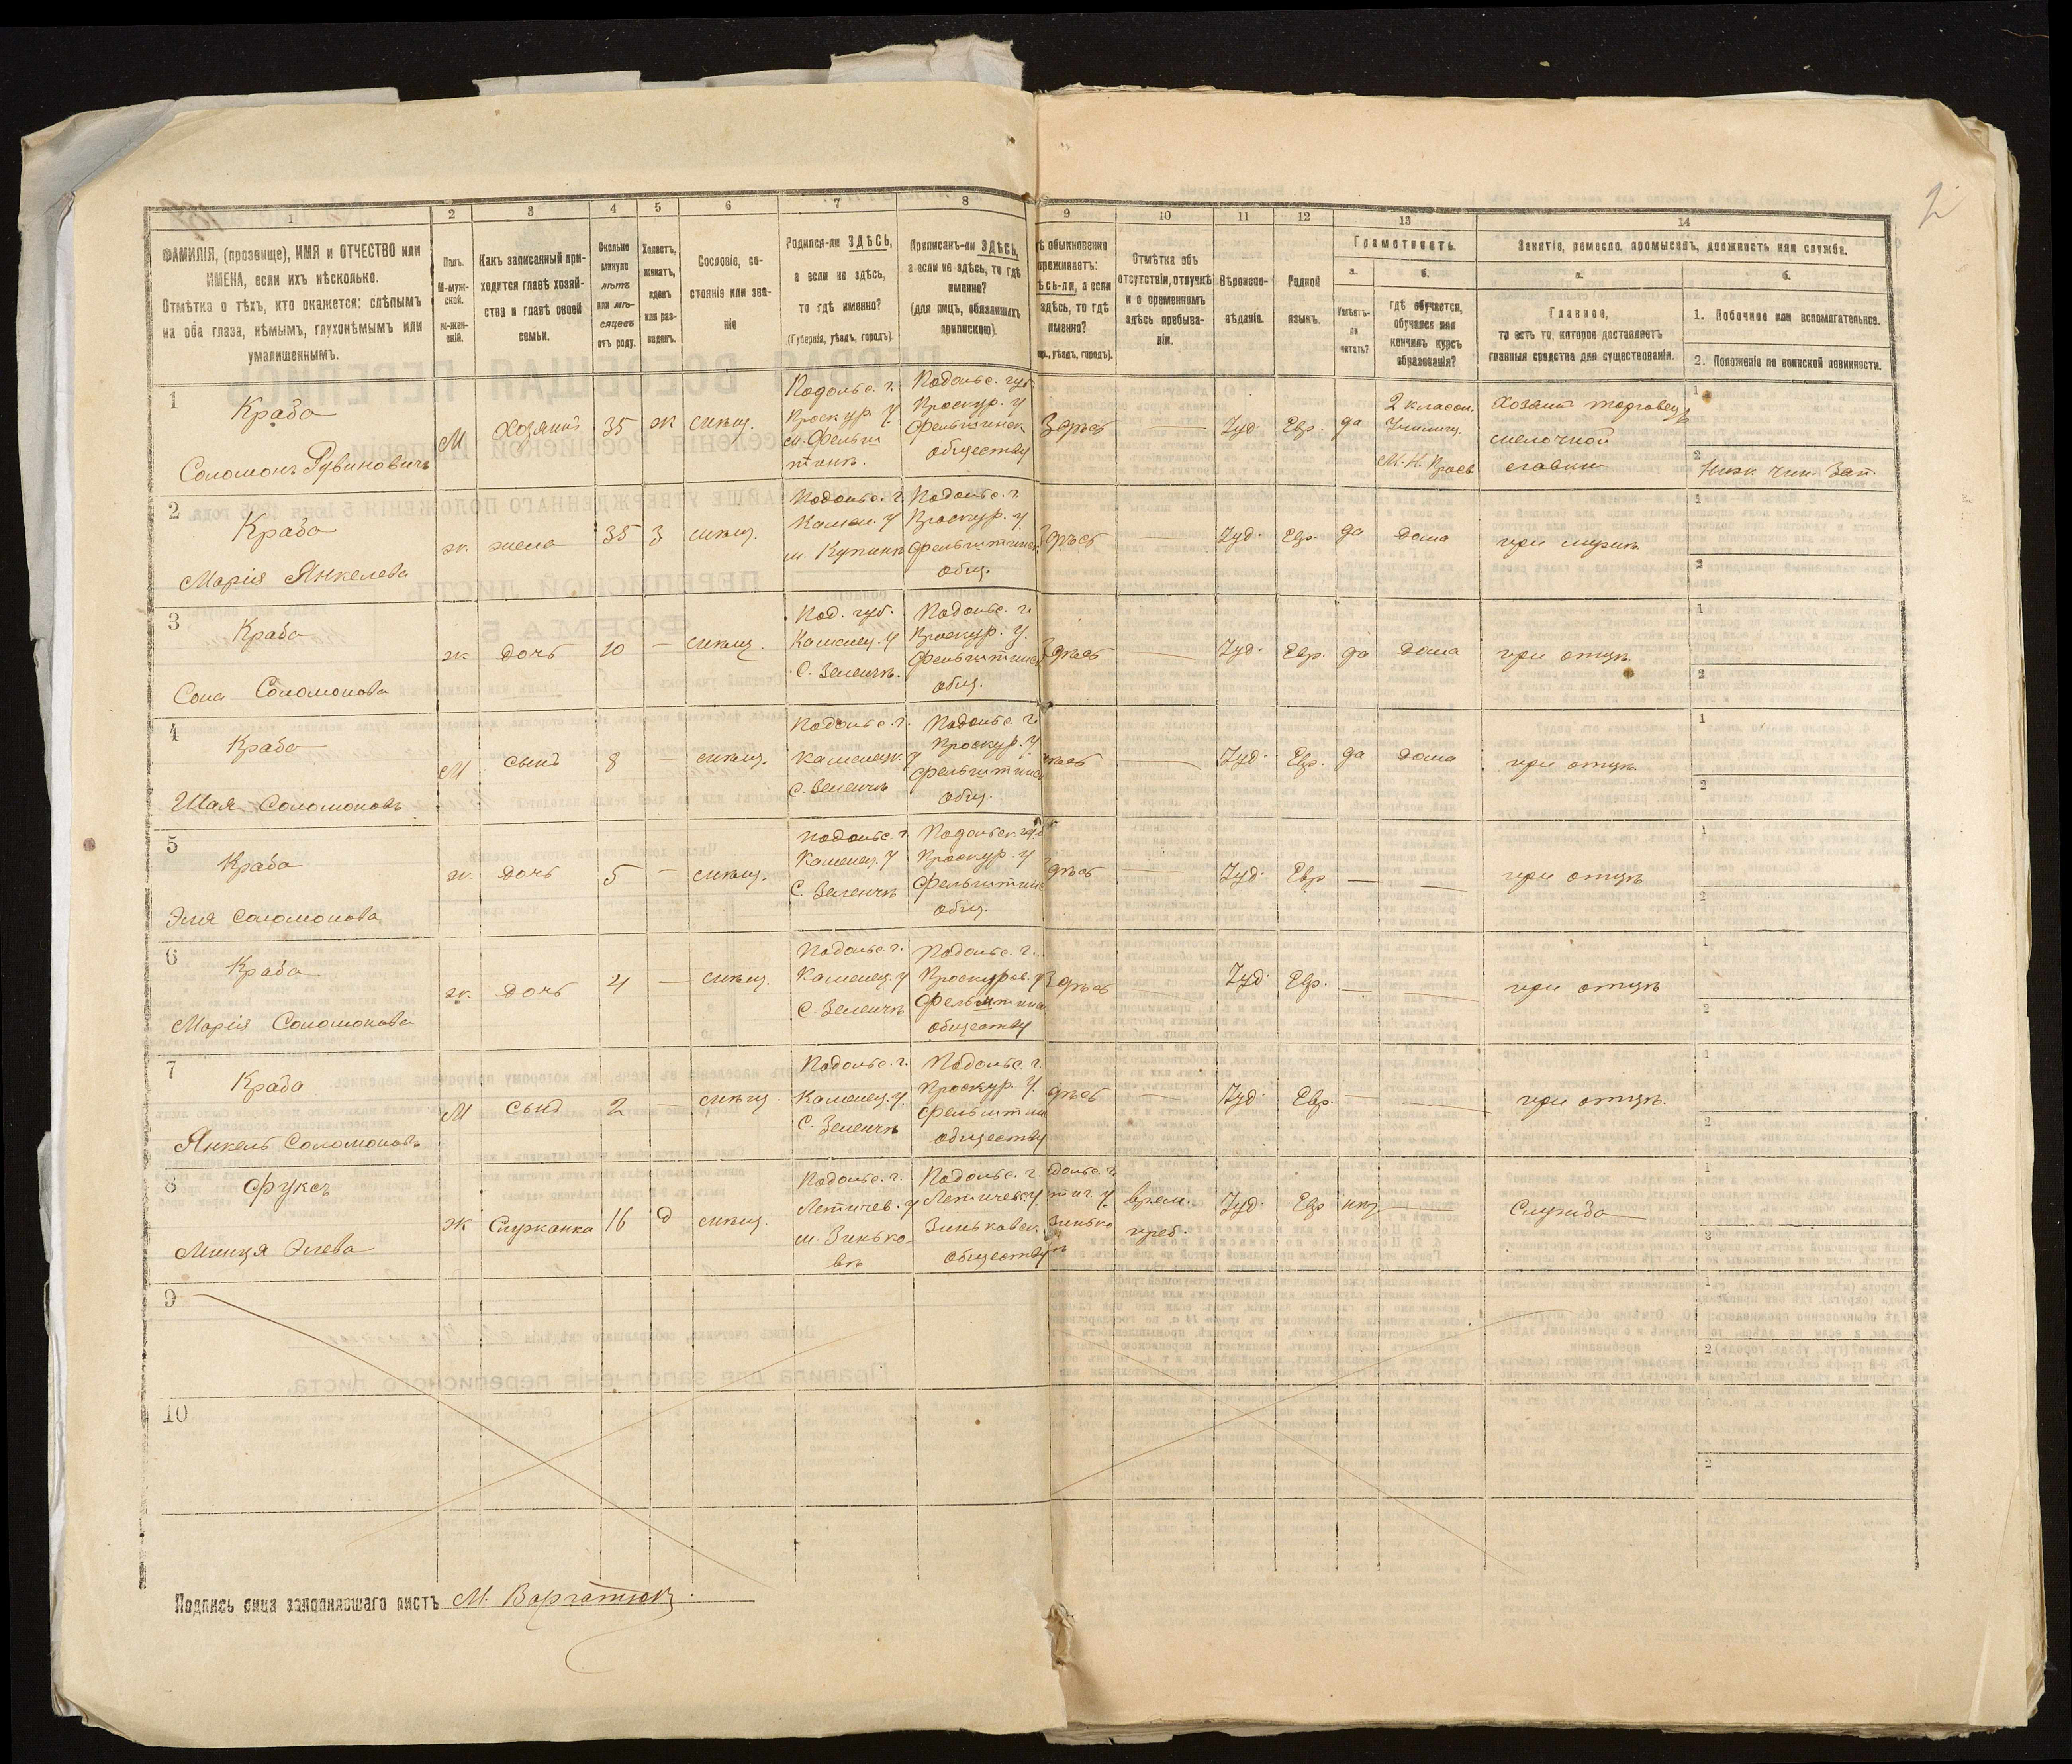 2
1 2 3 4 5 6 7 8 9 10 11 12 13 14
ФАМИЛІЯ, (прозвище), ИМЯ и ОТЧЕСТВО или
ИМЕНА, если ихъ нѣсколько.
Отмѣтка о тѣхъ, кто окажется: слѣпымъ
на оба глаза, нѣмымъ, глухонѣмымъ или
умалишеннымъ.
Полъ.
М-муж-
ской.
ж-жен-
скій.
Какъ записанный при-
ходится главѣ хозяй-
ства и главѣ своей
семьи.
Сколько
минуло
лѣтъ
или мѣ-
сяцевъ
отъ роду.
Холостъ,
женатъ,
вдовъ
или раз-
веденъ.
Сословіе, со-
стояніе или зва-
ніе
Родился-ли ЗДѢСЬ,
а если не здѣсь,
то гдѣ именно?
(Губернія, уѣздъ, городъ).
Приписанъ-ли ЗДѢСЬ,
а если не здѣсь, то гдѣ
именно?
(для лицъ, обязанныхъ
припискою).
ѣ обыкновенно
проживаетъ:
ѣсь-ли, а если
здѣсь, то гдѣ
именно?
ер., уѣздъ, городъ).
Отмѣтка объ
отсутствіи, отлучкѣ
и о временномъ
здѣсь пребыва-
ніи.
Вѣроиспо-
вѣданіе.
Родной
языкъ.
Грамотность.
а.
б.
Умѣетъ-
ли
читать?
гдѣ обучается,
обучался или
кончилъ курсъ
образованія?
Занятіе, ремесло, промыселъ, должность или служба.
а.
б.
Главное,
то есть то, которое доставляетъ
главныя средства для существованія.
1. Побочное или вспомогательное.
2. Положеніе по воинской повинности.
1
Краба
Соломонъ Рувиновичъ
М
Хозяинъ
35
ж
мѣщ.
Подольс. г.
Проскур. у
м. Фельш
тинъ.
Подольс. губ.
Проскур. у
Фельштинск
обществу
Здѣсь
—
Іуд.
Евр.
да
2 класон.
Училищ.
Хозяинъ торговецъ
мелочной
лавки
1
2
Ниж. чин. Зап.
2
Краба
Марія Янкелева
ж.
жена
35
З
мѣщ.
Подольс. г.
Камен. у
м. Купинѣ
Подольс. г.
Проскур. у.
Фельштинск
общ.
Здѣсь
—
Іуд.
Евр.
да
Дома
при мужѣ
1
2
3
Краба
Соня Соломонова
ж.
Дочь
10
—
мѣщ.
Под. губ.
Каменец. у
С. Зеленчѣ.
Подольс. г.
Проскур. у.
Фельштинск
общ.
Здѣсь
—
Іуд.
Евр.
да
Дома
при отцѣ
1
2
4
Краба
Шая Соломоновъ
М
Сынъ
8
—
мѣщ.
Подольс. г.
Каменец. у
С. Зеленчѣ
Подольс. г.
Проскур. у
Фельштинск
общ.
ѣсь
—
Іуд.
Евр.
да
Дома
при отцѣ
1
2
5
Краба
Эля Соломонова
ж.
Дочь
5
—
мѣщ.
Подольс. г.
Каменец. у
С. Зеленчѣ
Подольск. губ
Проскур. у
Фельштинс
общ.
Здѣсь
—
Іуд.
Евр
— —
при отцѣ
1
2
6
Краба
Марія Соломонова
ж.
Дочь
4
—
мѣщ.
Подольс. г.
Каменец. у
С. Зеленчѣ
Подольс. г.
Проскуров. у
Фельштинс
обществу
Здѣсь
Іуд.
Евр.
— —
при отцѣ
1
2
7
Краба
Янкель Соломоновъ
М
Сынъ
2
—
мѣщ.
Подольс. г.
Каменец. у.
С. Зеленчѣ
Подольс. г.
Проскур. у.
Фельштин
обществу
дѣсь
—
Іуд.
Евр.
— —
при отцѣ.
1
2
8
Фуксъ
Эліева
ж
Служанка
16
д
мѣщ.
Подольс. г.
Летичев. у
м. Зинько
вѣ
Подольс. г.
Летичев. у.
Зиньковск.
обществу
дольс. г.
тич. у
Зинько
врем.
преб.
Іуд.
Евр
нѣт
—
Служба
1
2
9
1
2
10
1
2
Подпись лица заполнявшаго листъ М. Варгатюкъ